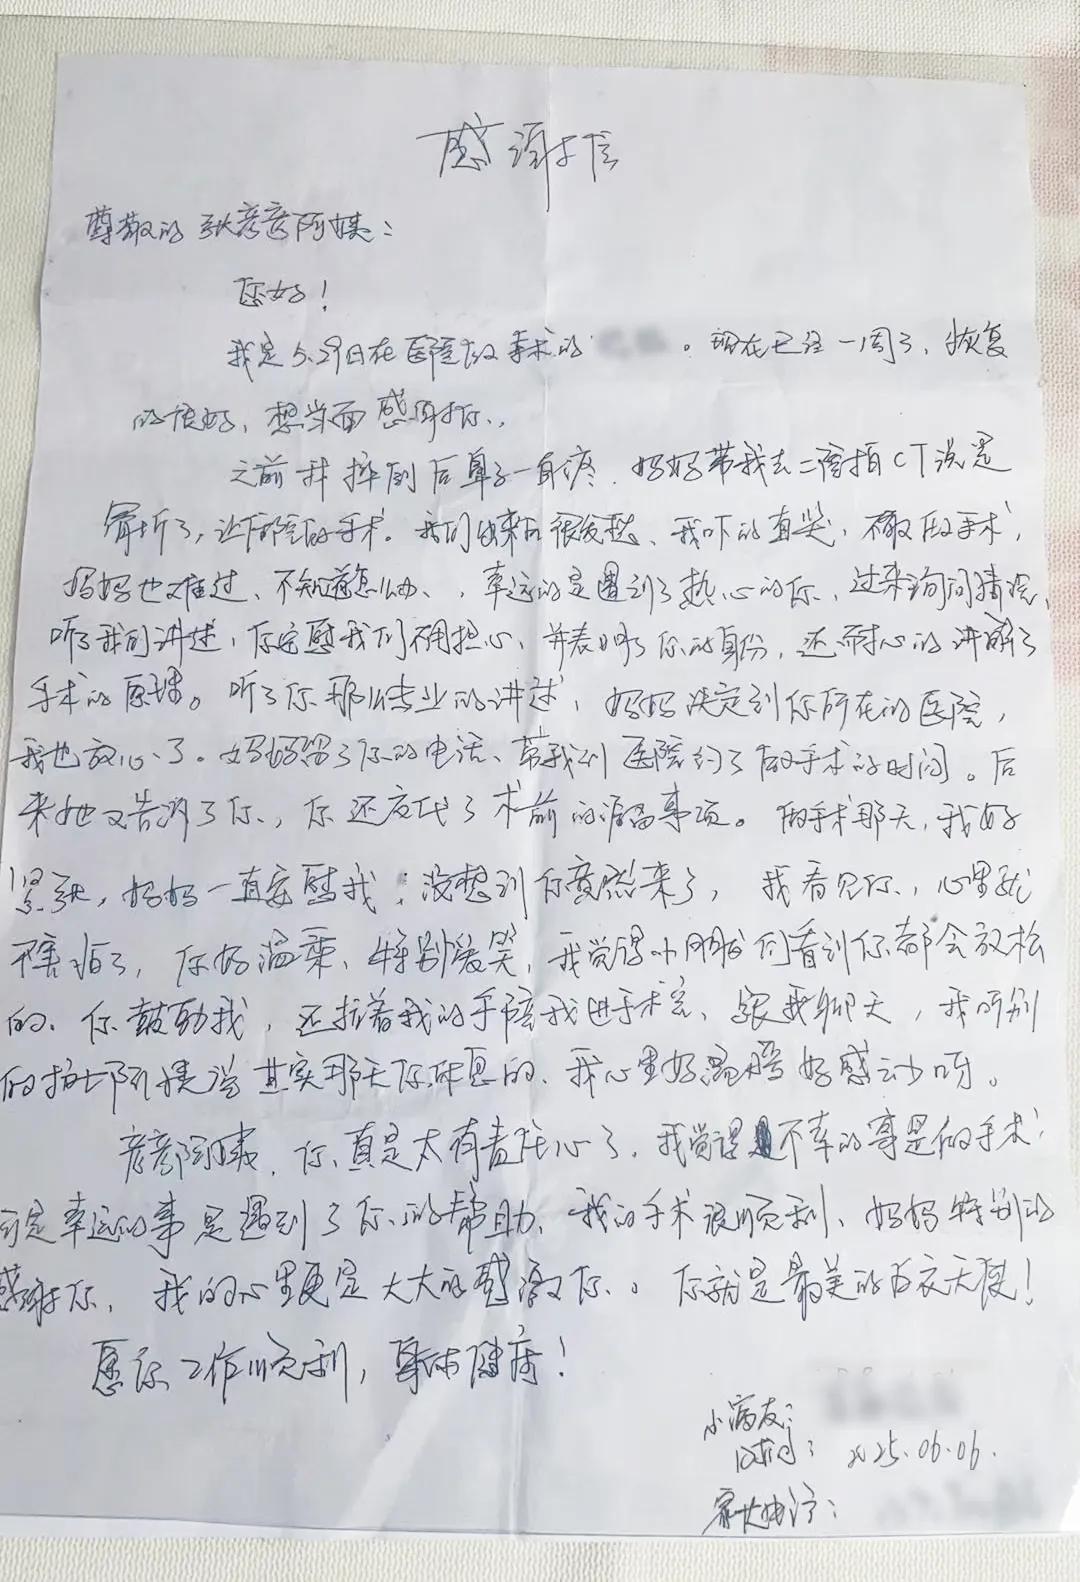 感谢信
尊敬的张彦彦阿姨：
您好！
我是5.29日在医院做手术的。现在已经一周了，恢复
的很好，想当面感谢你。
之前我摔倒后鼻子一直疼，妈妈带我去二院拍CT说是
骨折了，让住院做手术。我们出来后很发愁、我吓的直哭，不敢做手术，
妈妈也难过、不知道怎么办、，幸运的是遇到了热心的你，过来询问情况，
听了我们讲述，你安慰我们不用担心，并表明了你的身份，还耐心的讲解了
手术的原理。听了你那么专业的讲述，妈妈决定到你所在的医院，
我也放心了。妈妈留了你的电话、带我到医院约了做手术的时间。后
来她又告诉了你，你还交代了术前的准备事项。做手术那天，我好
紧张，妈妈一直安慰我；没想到你竟然来了，我看见你，心里就
不害怕了，你好温柔、特别爱笑，我觉得小朋友们看到你都会放松
的、你鼓励我，还拉着我的手陪我进手术室、跟我聊天，我听别
的护士阿姨说其实那天你休息的、我心里好温暖好感动呀。
彦彦阿姨，你真是太有责任心了，我觉得不幸的事是做手术，
可是幸运的事是遇到了你的帮助、我的手术很顺利、妈妈特别的
感谢你，我的心里更是大大的感激你。你就是最美的白衣天使！
愿你工作顺利，身体健康！
小病友：
时间：2025.06.06.
家长电话：